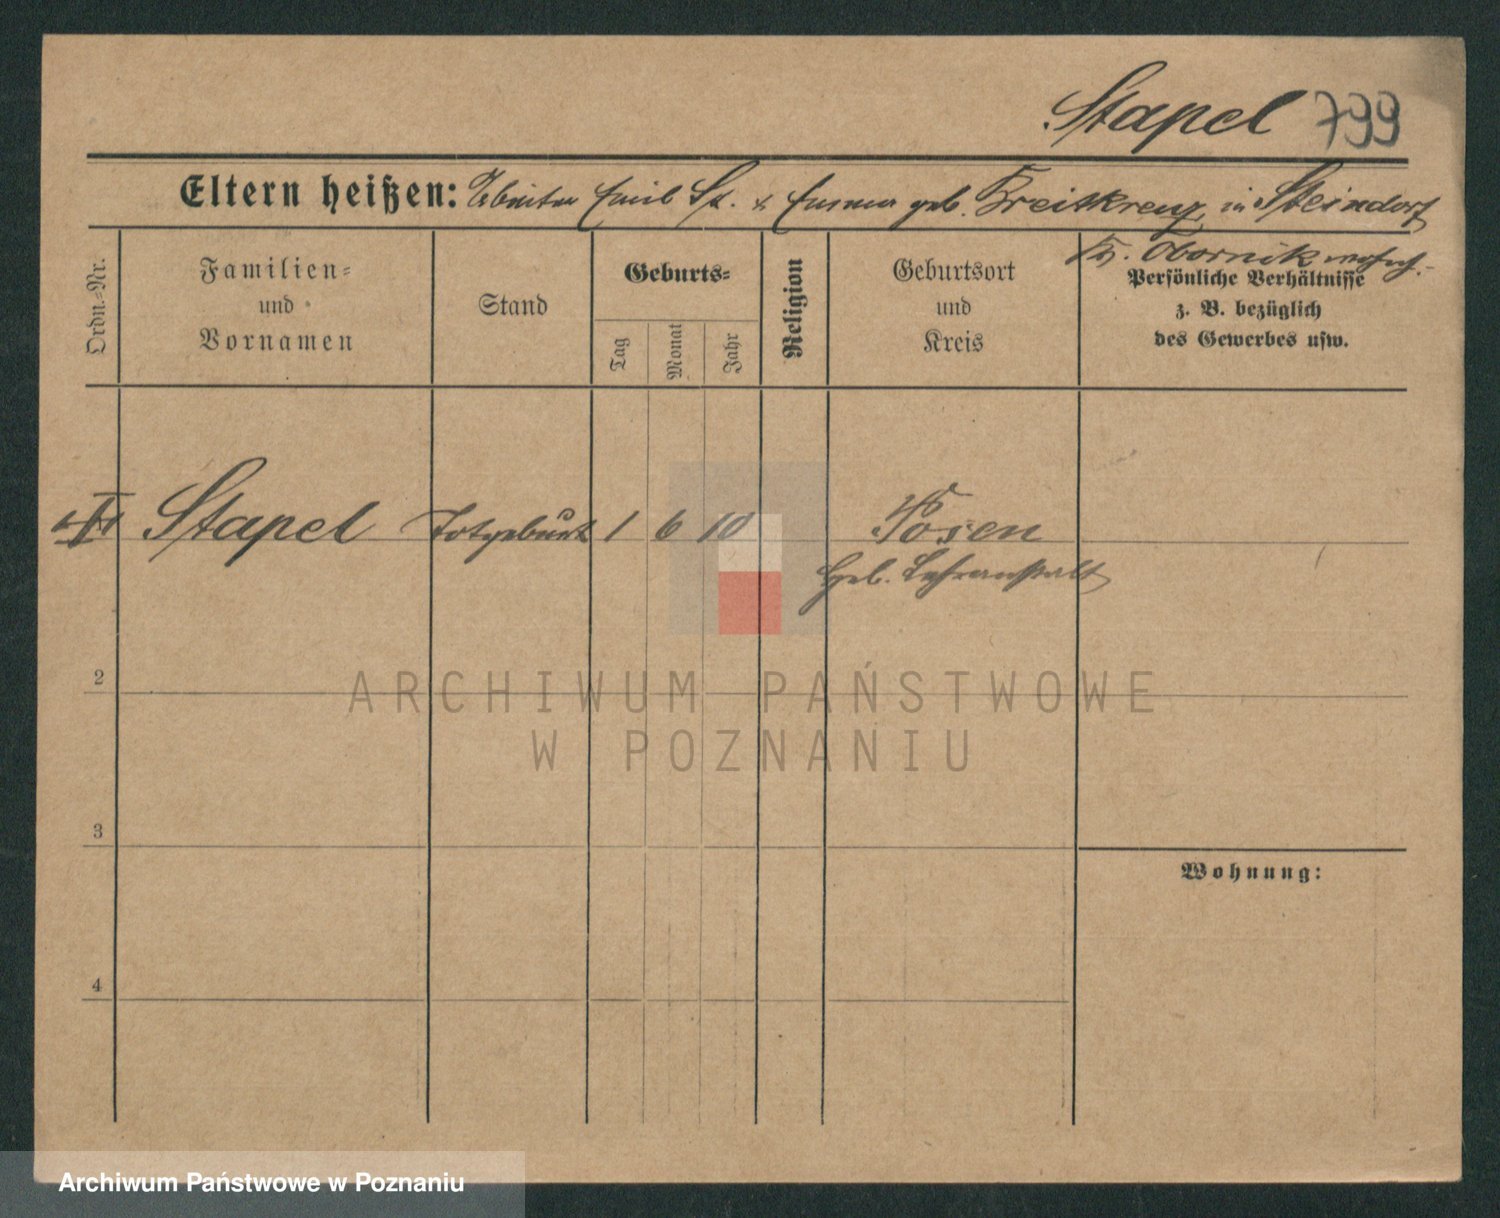 Stapel 799
Eltern heißen: Arbeiter Emil St. & Emma geb. Kreitkreuz, in Steindorf
Kr. Obornik wohnh.
Ordn.-Nr.
Familien-
und
Vornamen
Stand
Geburts-
Tag
Monat
Jahr
Religion
Geburtsort
und
Kreis
Persönliche Verhältnisse
z. B. bezüglich
des Gewerbes usw.
Stapel Totgeburt 1 6 10 Posen
Heb. Lehranstalt
2
ARCHIWUM PAŃSTWOWE
W POZNANIU
3
Wohnung:
4
Archiwum Państwowe w Poznaniu